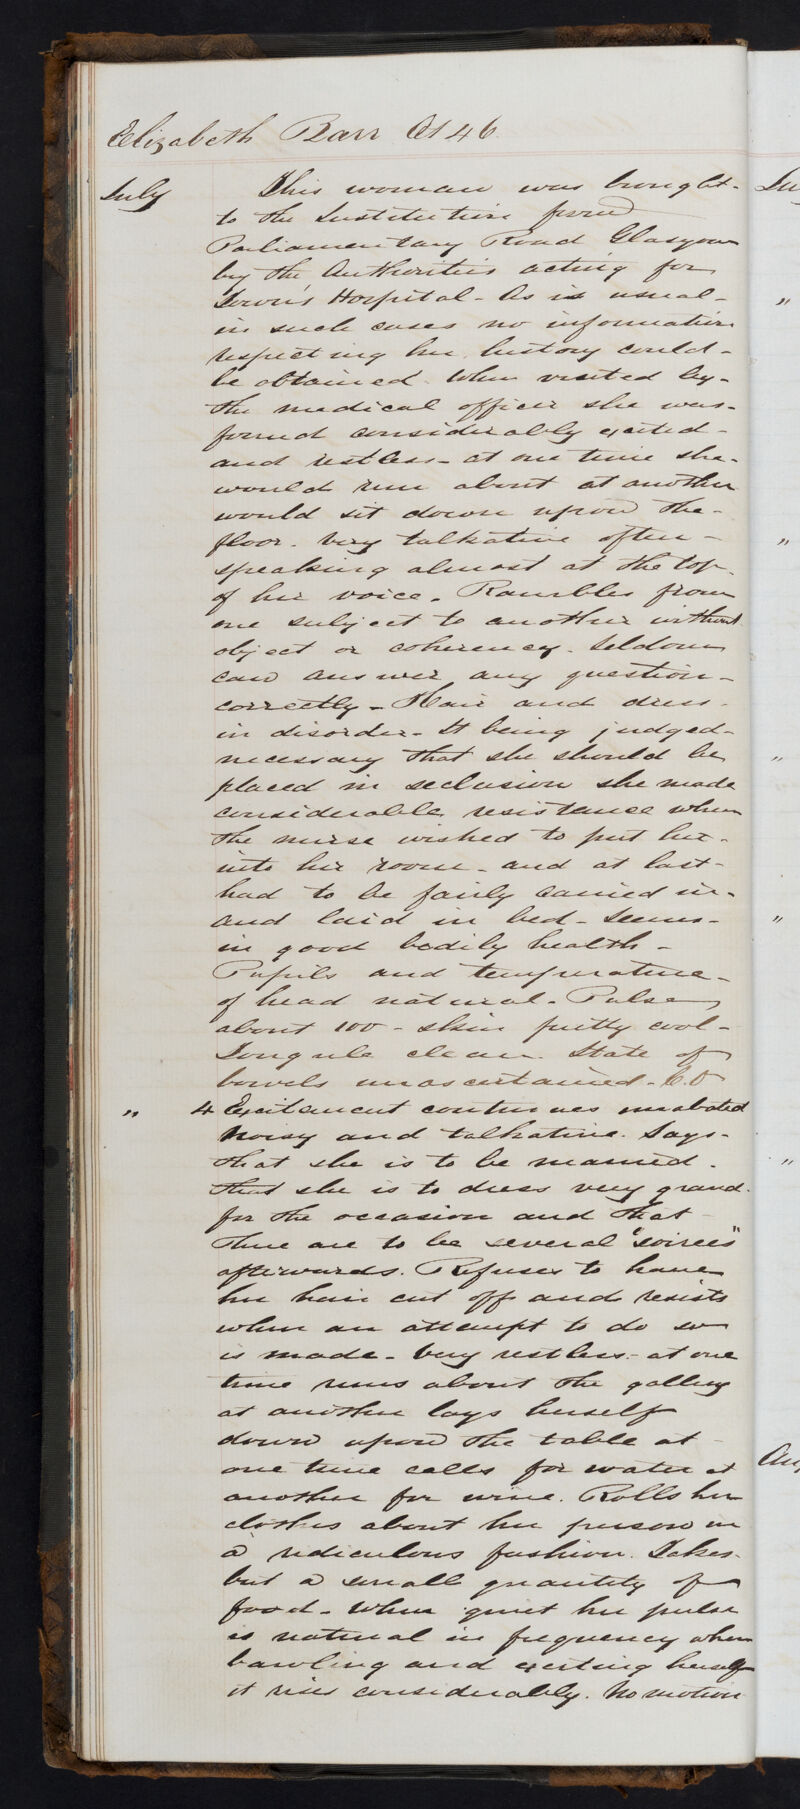 Elizabeth Barr Æt 46
July This woman was brought-
to the Institution from
Parliamentary Road Glasgow
by the Authorities acting for
Town's Hospital - As is usual-
in such cases no information
respecting her history could-
be obtained. When visited by-
the medical officer she was-
found considerably excited-
and restless - at one time she-
would run about at another
would sit down upon the-
floor. Very talkative often-
speaking almost at the top-
of her voice. Rambles from
one subject to another without
object or coherency. Seldom
can answer any question-
correctly - Hair and dress-
in disorder - It being judged-
necessary that she should be
placed in seclusion she made
considerable resistance when
the nurse wished to put her-
into her room - and at last-
had to be fairly carried in-
and laid in bed - Seems-
in good bodily health-
Pupils and temperature-
of head natural - Pulse
about 100 - skin pretty cool-
Tongue clean. State of
bowels unascertained -
" 4 Excitement continues unabated
Noisy and talkative. Says-
that she is to be married.
that she is to dress very grand.
for the occasion and that
there are to be several "soirees"
afterwards. Refuses to have
her hair cut off and resists
when an attempt to do so
is made - Very restless - at one
time runs about the gallery
at another lays herself
down upon the table at
one time calls for water at
another for wine. Rolls her
clothes about her person in
a ridiculous fashion. Takes-
but a small quantity of
food - When quiet her pulse
is natural in frequency when
bawling and exciting herself
it rises considerably. No motion